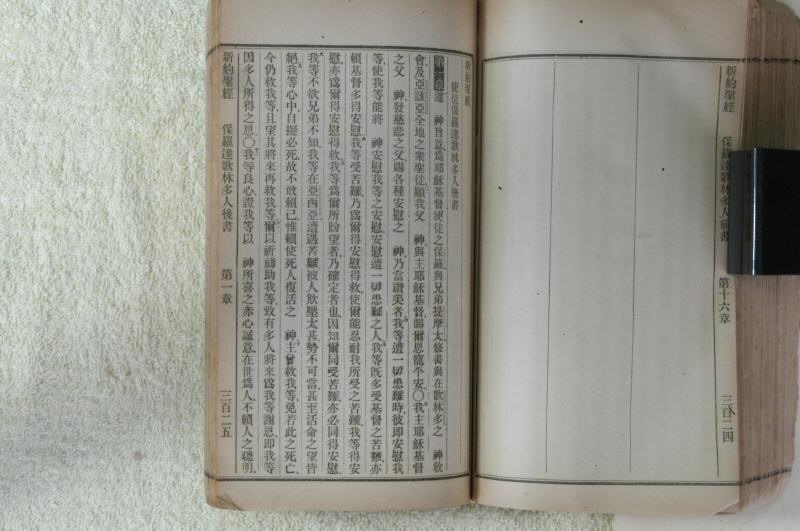 新約聖經 保羅達歌林多人前書 第十六章 三百二四
新約聖經
使徒保羅達歌林多人後書
第一章遵 神旨意、爲耶穌基督使徒之保羅、與兄弟提摩太、修書與在歌林多之 神教
會、及亞該亞全地之衆聖徒、願我父 神、與主耶穌基督、賜爾恩寵平安、〇我主耶穌基督
之父 神、發慈悲之父、賜各種安慰之 神、乃當讚美者、我等遭一切患難時、彼即安慰我
等、使我等能將 神安慰我等之安慰、安慰遭一切患難之人、我等既多受基督之苦難、亦
賴基督多得安慰、我等受苦難、乃爲爾得安慰得救、使爾能忍耐我所受之苦難、我等得安
慰、亦爲爾得安慰得救、我等爲爾所盼望者、乃確定者也、因知爾同受苦難、亦必同得安慰、
我等不欲兄弟不知、我等在亞西亞遭遇苦難、被人欺壓太甚、勢不可當、甚至活命之望皆
絕、我等心中、自擬必死、故不敢賴己、惟賴使死人復活之 神、主曾救我等、免若此之死亡、
今仍救我等、且望其將來再救我等、爾以祈禱助我等、致有多人將來爲我等謝恩、即我等
因多人所得之恩、〇我等良心、證我等以 神所喜之赤心誠意、在世爲人、不賴人之聰明、
新約聖經 保羅達歌林多人後書 第一章 三百二五